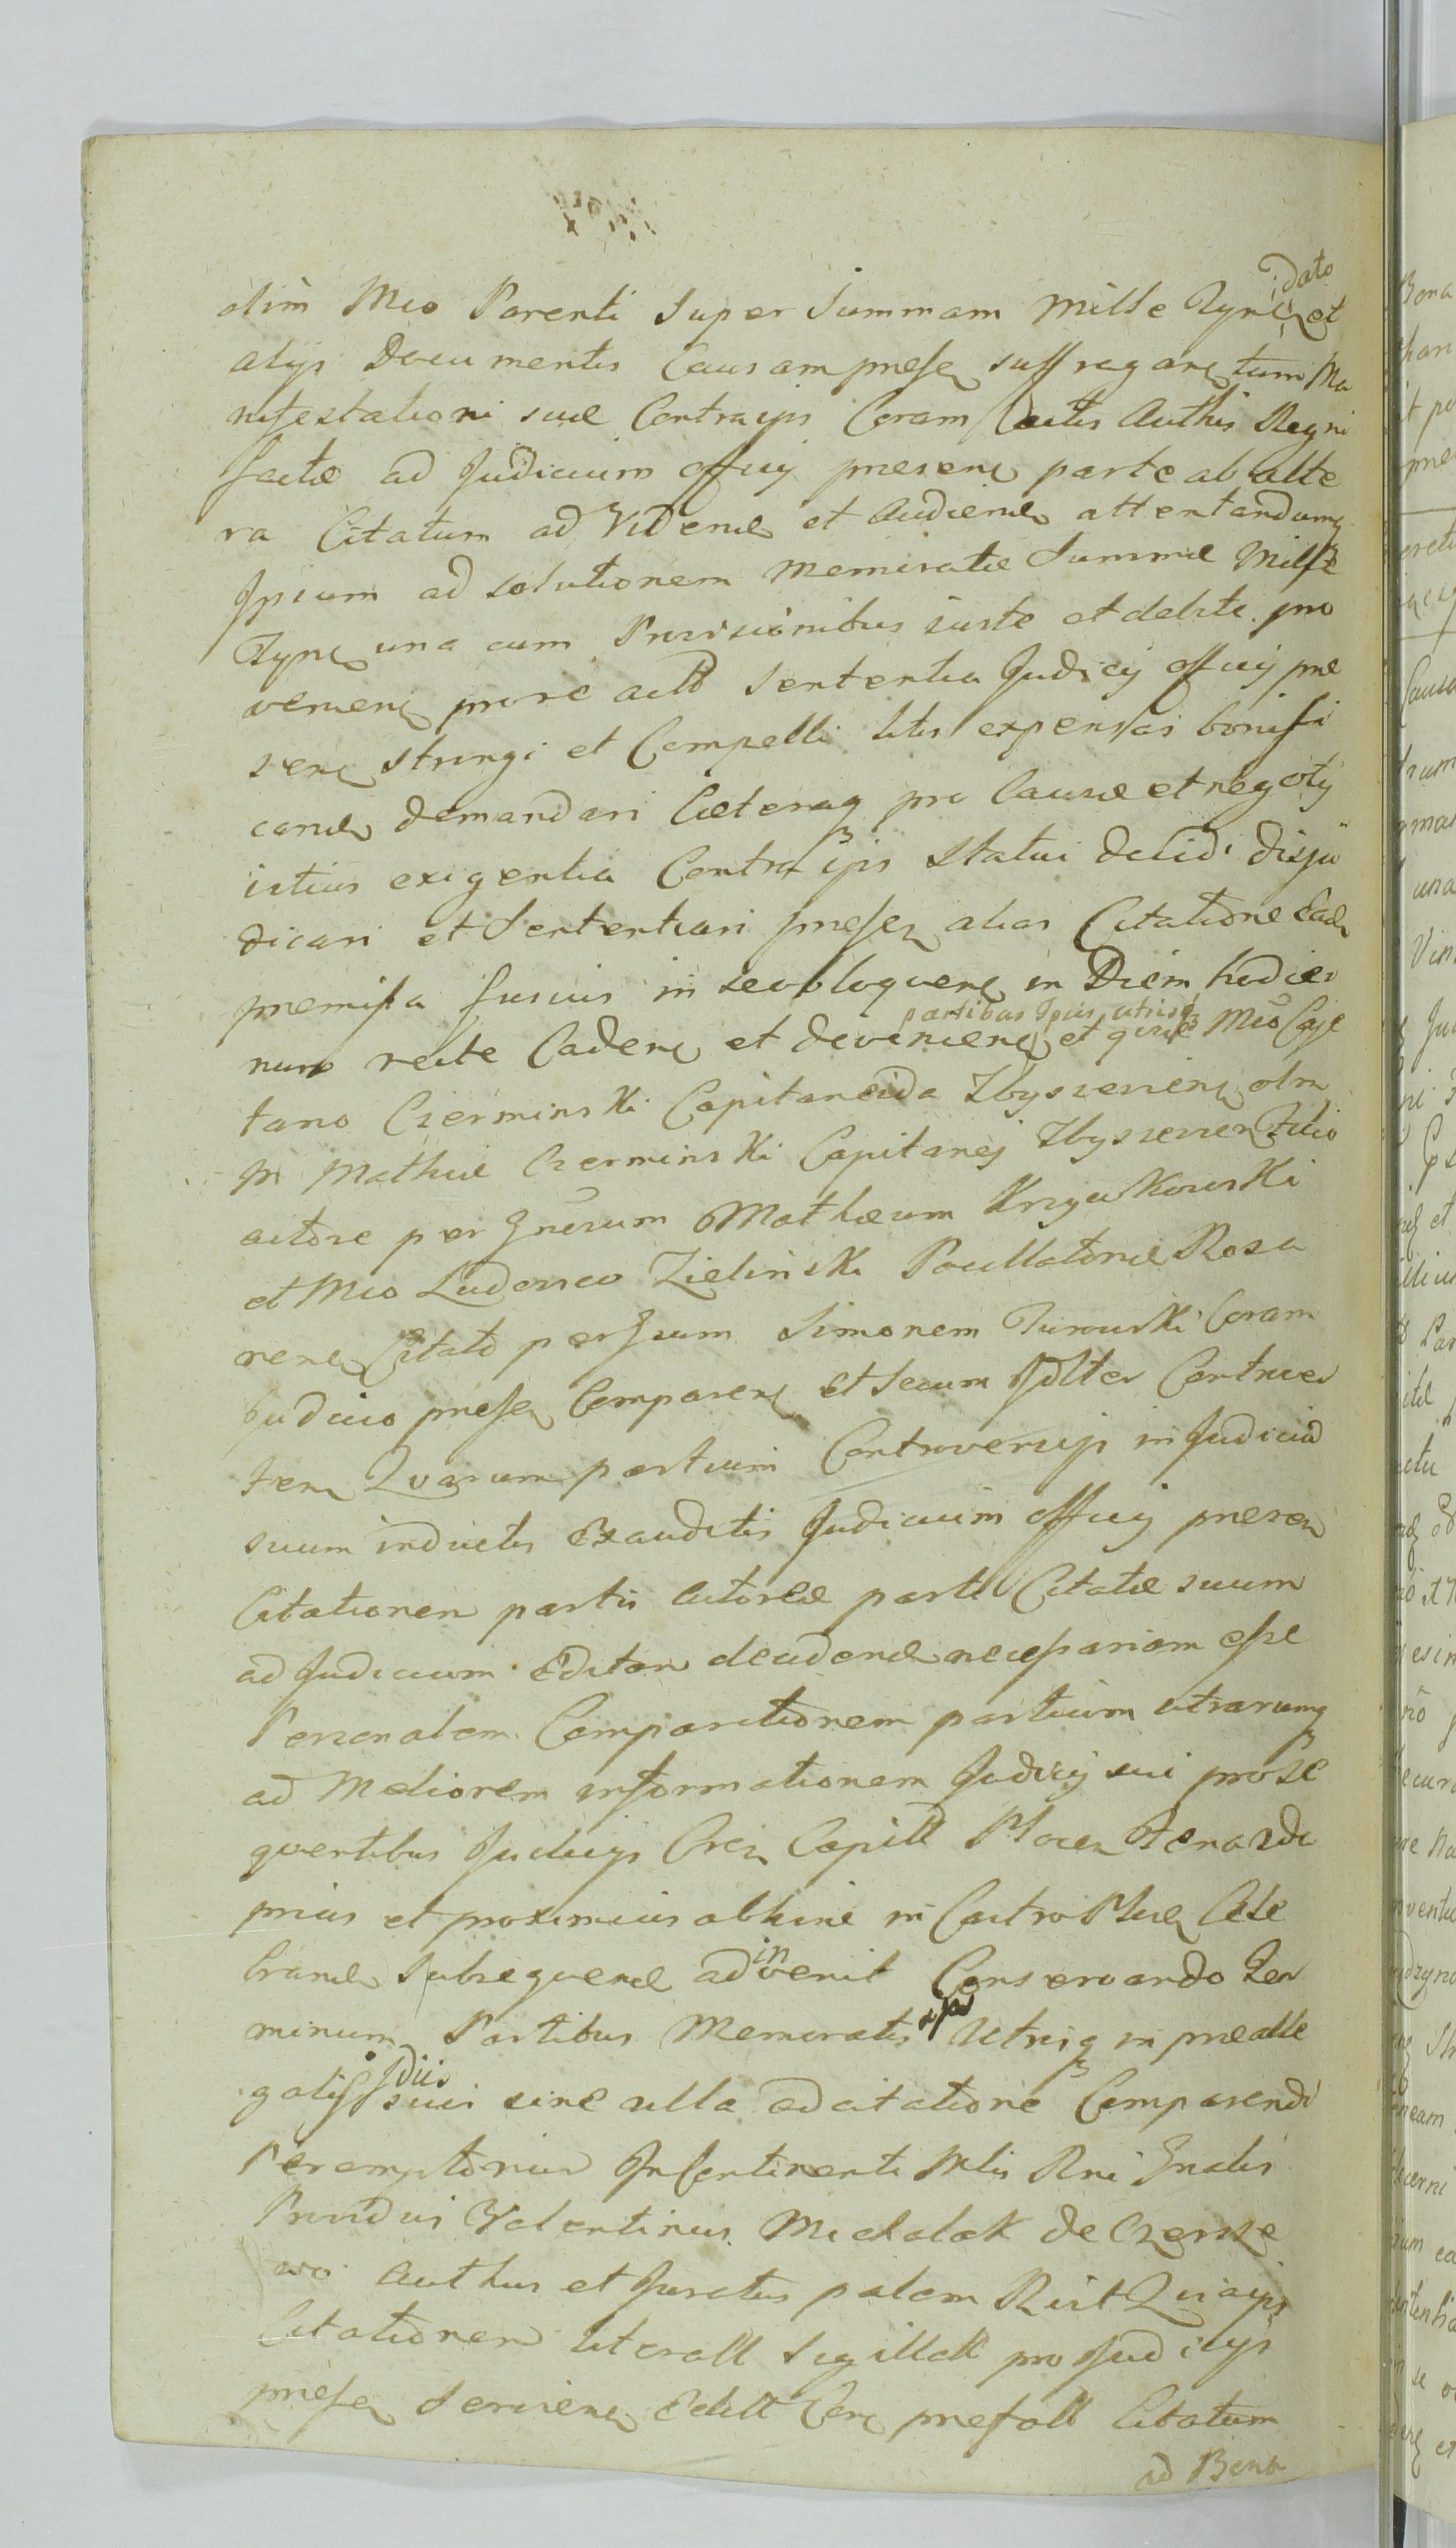 dato
olim Mco Parenti super Summam mille Tynf et
alijs Documentis Causam presen suffragan tum Ma
nifestationi suæ Contra ips Coram Actis Authis Regni
factæ ad Judicium officij presen parte ab alte
ra Citatum ad Videnđ et Audienđ attentandumq
Ipsum ad solutionem memoratæ Summæ Mille
Tynf una cum Provisionibus iuste et debite pro
venien prove actt Sententia Judicij officij præ
sen stringi et Compelli litis expensas bonifi
canđ demandari Cæteraq pro Causæ et negotij
istius exigentia Contra ips statui decidi disju
dicari et Sententiari presen alias Citatione Ead
premissa fusius in se obloquen in Diem hodier
num recte Caden et devenien partibus Ipsis utrisq et quidem Mco Caje
tano Czerminski Capitaneida Zbyszevien olim
M Mathiæ Czerminski Capitanej Zbyszevien Filio
actore per Gnērum Mathæum Krzyczkowski
et Mco Ludovico Zielinski Pocillatoriæ Roza
nen Citato per Gsum Simonem Turowski Coram
Judicio presen Comparen et secum Jdlter Contraver
ten Quarum partium Controversijs in Judiciū
suum inductis Exauditis Judicium officij presen
Citationem partis actoreæ parti Citatæ suum
ad Judicium Editam deciđenđ necessariam esse
Personalem Comparitionem partium utrarumq
ad Meliorem informationem Judicij sui pro se
quentibus Judicijs Cren Capitt Plocen feria 2da
prius et proximius abhinc in Castro Plocen Cele
branđ subsequenđ adinvenit Conservando Ter
minum Partibus Memoratis ipsis Utrisq in præalle
gatis Jdiis suis sine ulla adcitatione Comparendi
Peremptorium In Continenti Mlis Rni Gnalis
Providus Valentinus Michalak de Czersze
wo Authus et Juratus palam Rcit Quia ips
Citationem literatt Sigillatt pro Judicijs
presen Servien Edictt Con prefatt Citatum
ad Bona